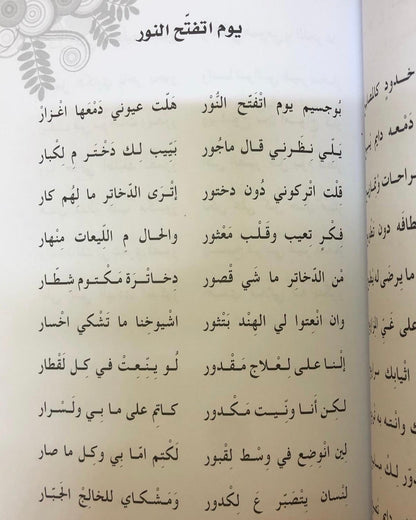 يوم اتفتّح النور
بُوجسيم يوم اتْفَتّح النُّوْر هَلّت عيوني دَمْعَها اغْزارْ
يَـلّـي نِظَرني قال ماجُور بَيّيب لِـك دَخْـتَـر مِ لِكْبار
قِلْت اتْركوني دُون دختور اِتْـرَى الدّخاتر ما لهُم كار
فِكْـرٍ تعيب وقَـلْـب مَعْثور والحال مِ اللّيعات منْهار
مْن الدّخاتر ما شَي قْصور دِخـاتـرة مَـكْـتـوم شِـطّـار
وان انْعتوا لي الهِنْد بَنْثور اشْيوخِنا ما تَشْكي اخْسار
اِلْـنـا على لِـعْـلاج مَـقْـدور لُـو يِـنّـعـتْ في كِـل لَقْطار
لـكِـن أنـا ونّـيـت مَـكْـدور كاتمٍ على ما بي ولَـسْـرار
لين انْوضِع في وسْط لِقبور لَكْتِم امّا بي وكل ما صار
لِنْسان يِتْصَبّر عَ لِكْدور وَمَشْكاي للخالِج الجَبّار
خدودٍ
دَمْعه دايم